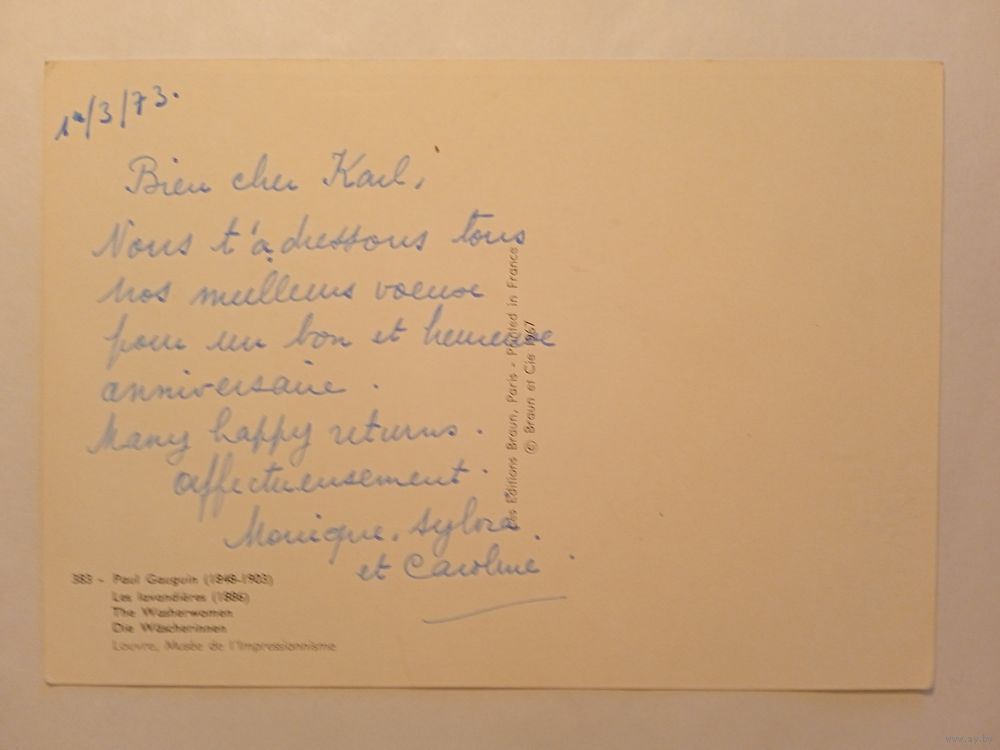 /3/73.
Bien cher Karl,
Nous t'adressons tous
nos meilleurs voeux
pour un bon et heureux
anniversaire.
Many happy returns.
affectueusement.
Monique,
et Caroline.
383 - Paul Gauguin (1848-1903)
Les lavandières (1886)
The Washerwomen
Die Wäscherinnen
Louvre, Musée de l'Impressionnisme
Les Editions Braun, Paris - Printed in France
© Braun et Cie 1967
www.ay.by